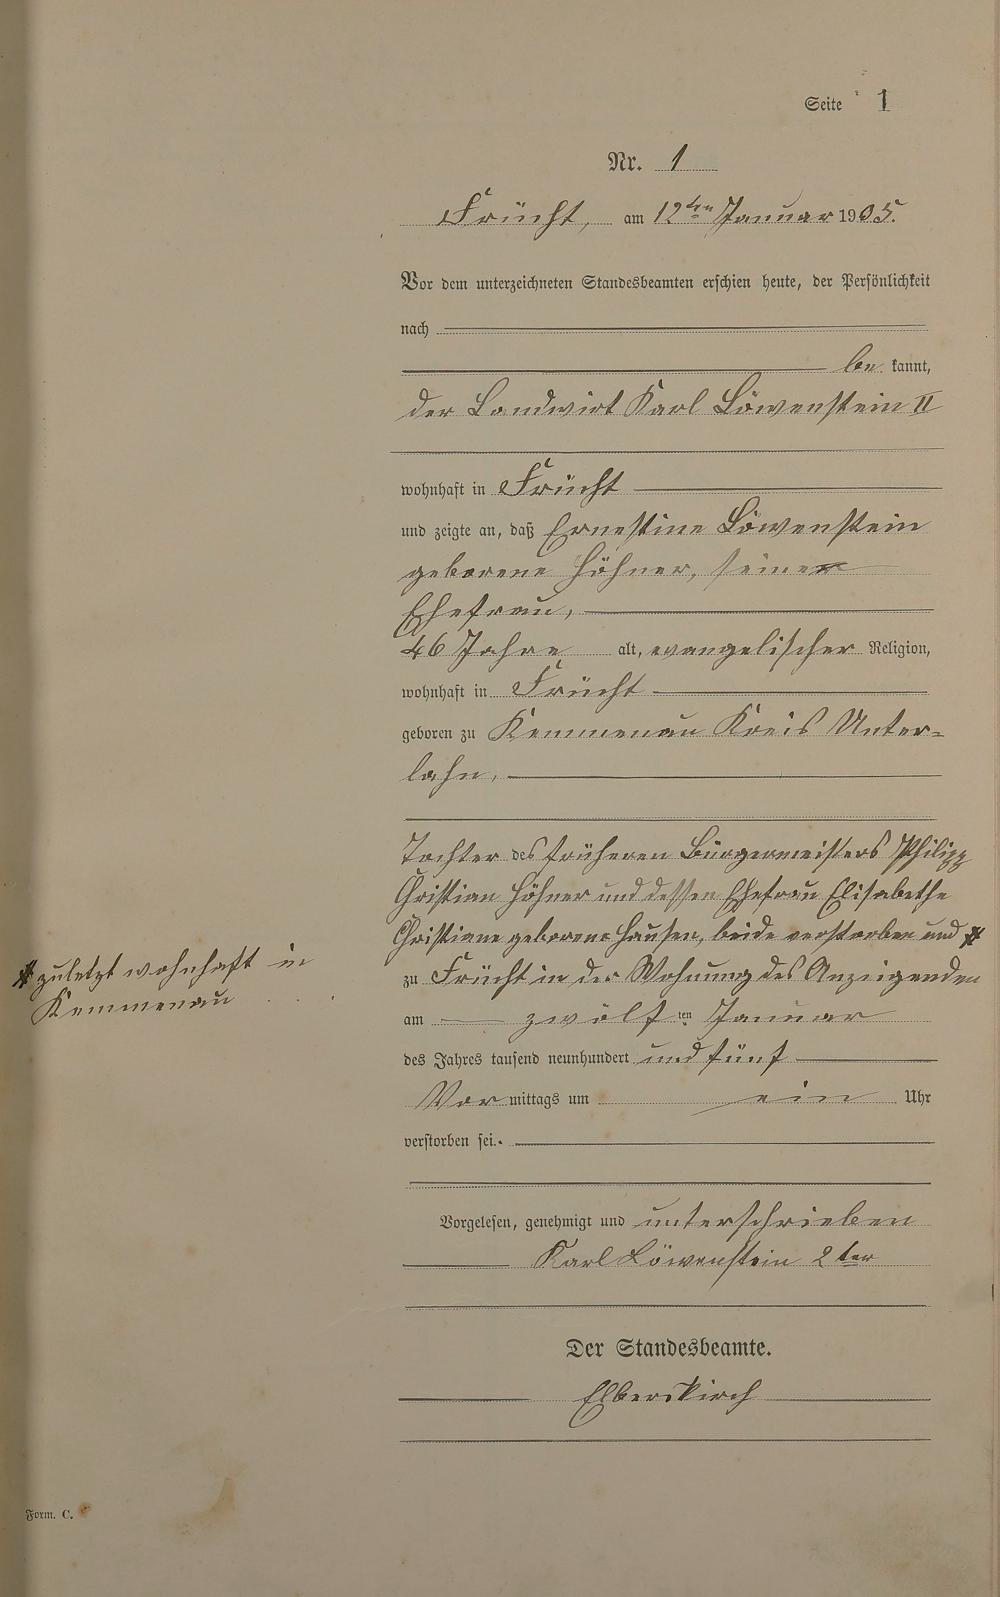 Seite 1
Nr. 1
Frücht, am 12ten Januar 1905.
Vor dem unterzeichneten Standesbeamten erschien heute, der Persönlichkeit
nach
be kannt,
der Landwirt Karl Löwenstein II
wohnhaft in Frücht
und zeigte an, daß Ernestine Löwenstein
geborene Höhner, seiner
Ehefrau,
46 Jahre alt, evangelischer Religion,
wohnhaft in Frücht
geboren zu Kemmenau Kreis Unter-
lahn,
Tochter des früheren Bürgermeisters Philipp
Christian Höhner und dessen Ehefrau Elisabethe
Christiane geborene Hausen, beide verstorben und #
# zuletzt wohnhaft in
Kemmenau
zu Frücht in der Wohnung des Anzeigenden
am zwölf ten Januar
des Jahres tausend neunhundert und fünf
Vor mittags um ein Uhr
verstorben sei.
Vorgelesen, genehmigt und unterschrieben
Karl Löwenstein 2ter
Der Standesbeamte.
Elberskirch
Form. C.